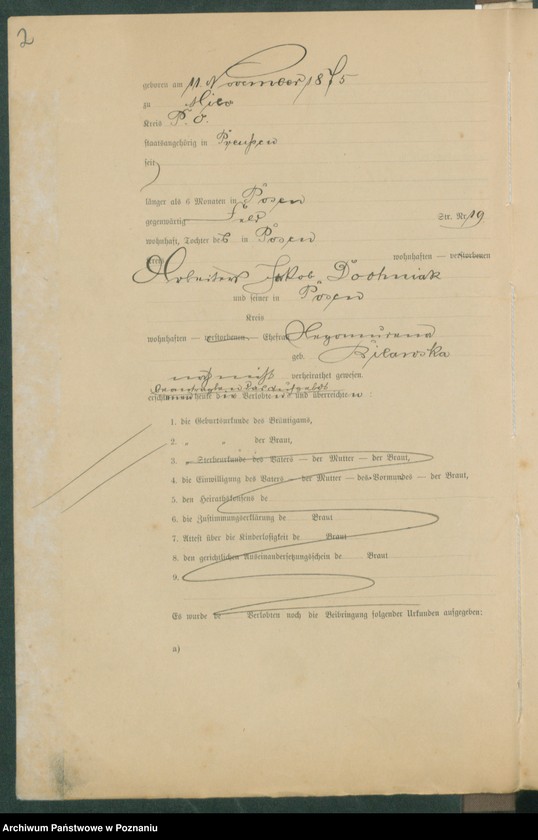 2
geboren am 11. November 1875
zu
Kreis P. O.
staatsangehörig in Preußen
seit
länger als 6 Monaten in Posen
gegenwärtig Feld Str. Nr. 19
wohnhaft, Tochter des in Posen
Kreis wohnhaften — verstorbenen
Arbeiters Jakob
und seiner in Posen
Kreis
wohnhaften — verstorbenen — Ehefrau
geb.
noch nicht verheirathet gewesen
heute die Verlobten und überreichten:
1. die Geburtsurkunde des Bräutigams,
2. „ „ der Braut,
3. „ Sterbeurkunde des Vaters — der Mutter — der Braut,
4. die Einwilligung des Vaters — der Mutter — des Vormundes — der Braut,
5. den Heirathskonsens de
6. die Zustimmungserklärung de Braut
7. Attest über die Kinderlosigkeit de Braut
8. den gerichtlichen Auseinandersetzungsschein de Braut
9.
Es wurde de Verlobten noch die Beibringung folgender Urkunden aufgegeben:
a)
Archiwum Państwowe w Poznaniu